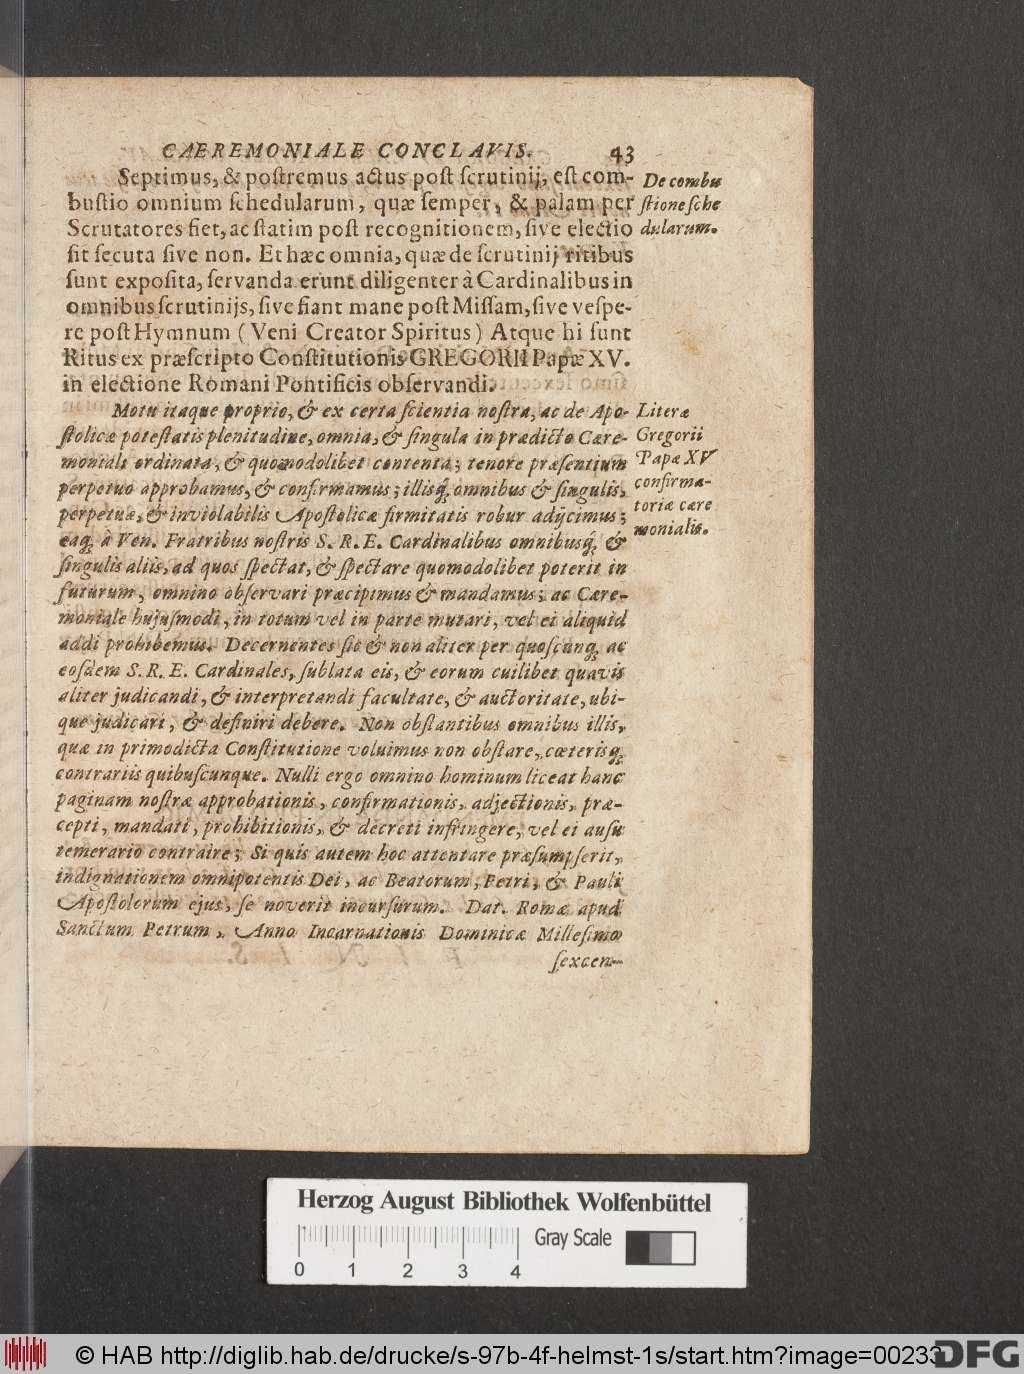 CAEREMONIALE CONCLAVIS. 43
Septimus, & postremus actus post scrutinij, est com-
bustio omnium schedularum, quæ semper, & palam per
Scrutatores fiet, ac statim post recognitionem, sive electio
sit secuta sive non. Et hæc omnia, quæ de scrutinij ritibus
sunt exposita, servanda erunt diligenter à Cardinalibus in
omnibus scrutinijs, sive fiant mane post Missam, sive vespe-
re post Hymnum (Veni Creator Spiritus) Atque hi sunt
Ritus ex præscripto Constitutionis GREGORII Papæ XV.
in electione Romani Pontificis observandi.
De combu
stione sche
dularum.
Motu itaque proprio, & ex certa scientia nostra, ac de Apo-
stolicæ potestatis plenitudine, omnia, & singula in prædicto Cære-
moniali ordinata, & quomodolibet contenta; tenore præsentium
perpetuo approbamus, & confirmamus; illisq́, omnibus & singulis,
perpetuæ, & inviolabilis Apostolicæ firmitatis robur adijcimus;
eaq́, à Ven. Fratribus nostris S. R. E. Cardinalibus omnibusq́, &
singulis aliis, ad quos spectat, & spectare quomodolibet poterit in
futurum, omnino observari præcipimus & mandamus; ac Cære-
moniale hujusmodi, in totum vel in parte mutari, vel ei aliquid
addi prohibemus. Decernentes sic & non aliter per quoscunq́, ac
eosdem S. R. E. Cardinales, sublata eis, & eorum cuilibet quavis
aliter judicandi, & interpretandi facultate, & auctoritate, ubi-
que judicari, & definiri debere. Non obstantibus omnibus illis,
quæ in primodicta Constitutione voluimus non obstare, cæterisq́,
contrariis quibuscunque. Nulli ergo omnino hominum liceat hanc
paginam nostræ approbationis, confirmationis, adjectionis, præ-
cepti, mandati, prohibitionis, & decreti infringere, vel ei ausu
temerario contraire; Si quis autem hoc attentare præsumpserit,
indignationem omnipotentis Dei, ac Beatorum, Petri, & Pauli
Apostolorum ejus, se noverit incursurum. Dat. Romæ apud
Sanctum Petrum, Anno Incarnationis Dominicæ Millesimo
sexcen-
Literæ
Gregorii
Papæ XV
confirma-
toriæ cære
monialis.
Herzog August Bibliothek Wolfenbüttel
Gray Scale
0 1 2 3 4
© HAB http://diglib.hab.de/drucke/s-97b-4f-helmst-1s/start.htm?image=00233
DFG